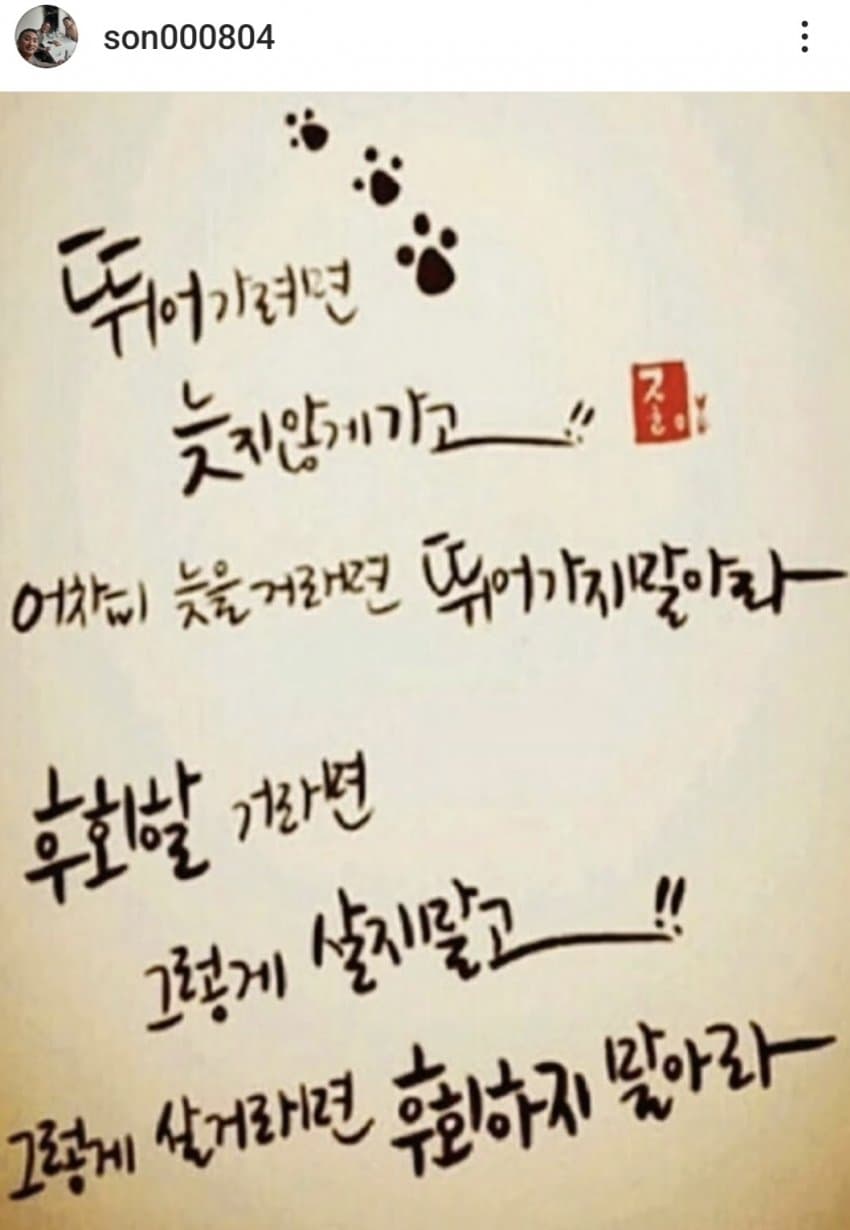 son000804
뛰어가려면
늦지않게가고!!
어차피 늦을거라면 뛰어가지말아라
후회할 거라면
그렇게 살지말고!!
그렇게 살거라면 후회하지 말아라